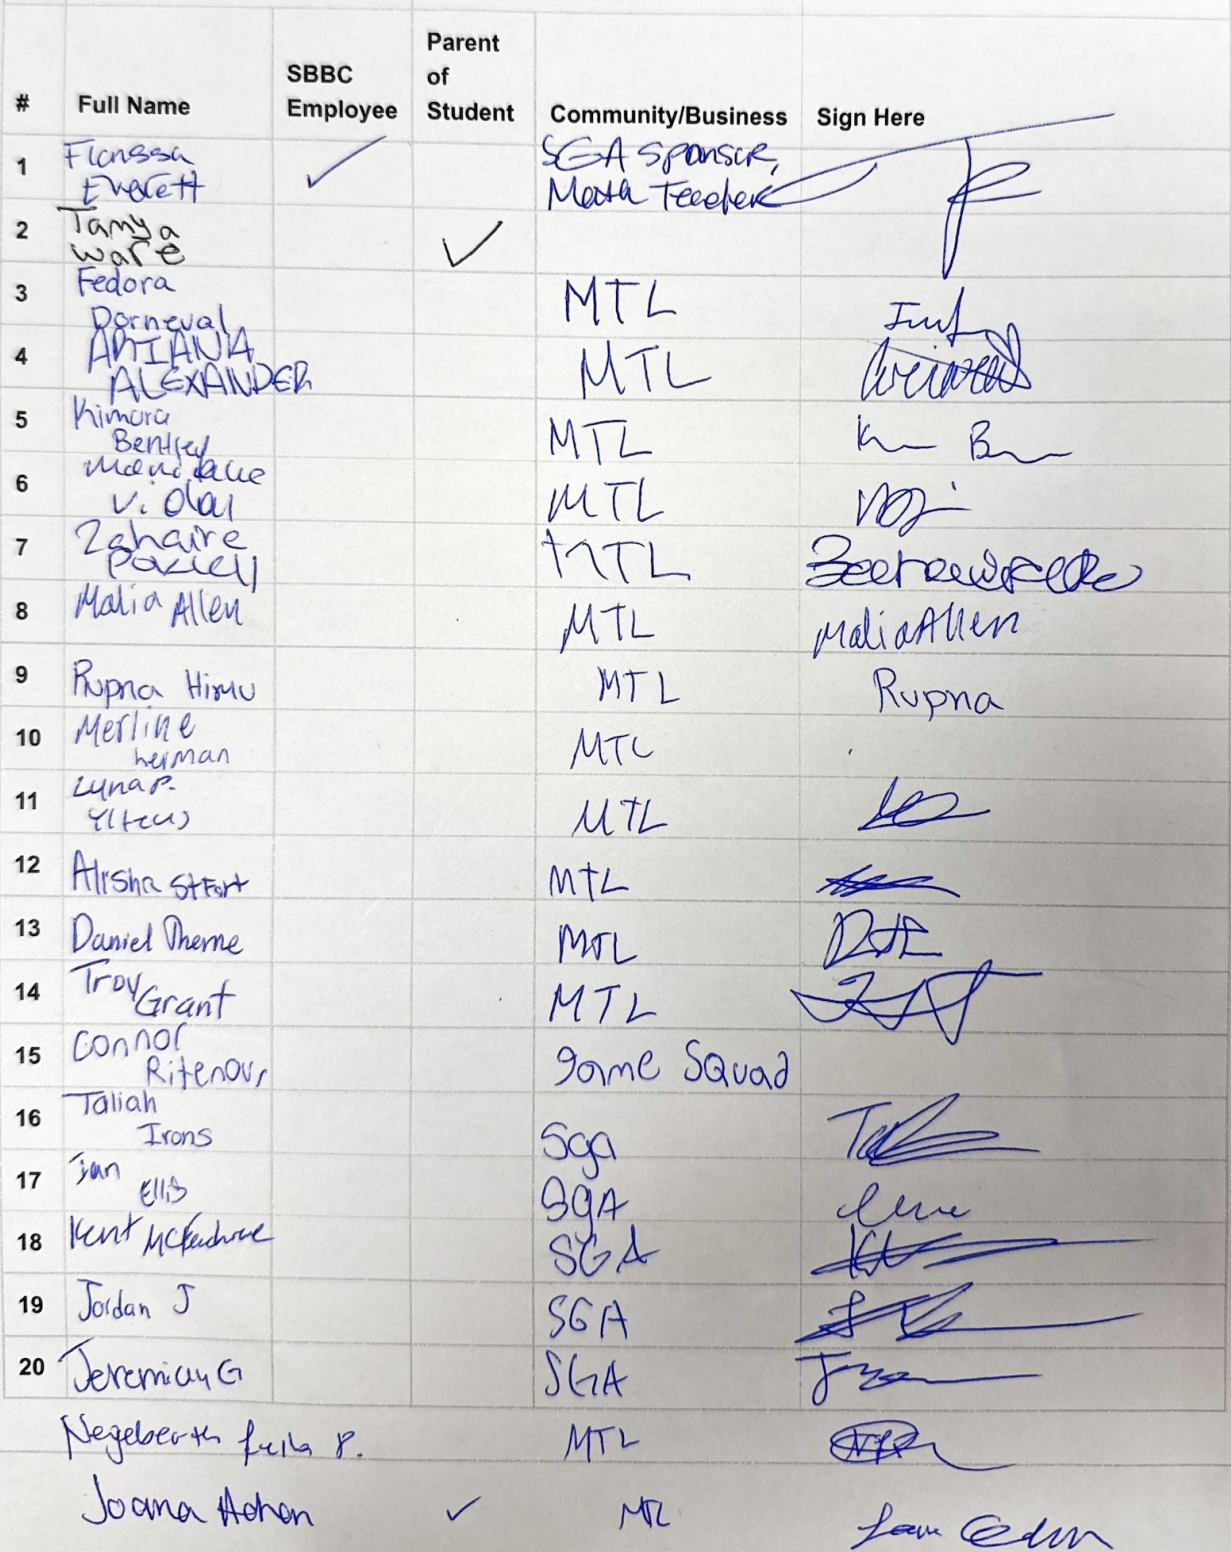 # Full Name SBBC Employee Parent of Student Community/Business Sign Here
1 Everett SGA Sponsor, Math Teacher
2 Tamya Ware
3 Fedora Dorneval MTL
4 ARIANA ALEXANDER MTL
5 Kimora Bentley MTL
6 MTL
7 Zahaire MTL
8 Malia Allen MTL Malia Allen
9 Rupna Himu MTL Rupna
10 Merline herman MTL
11 Luna P. MTL
12 Alisha St Fort MTL
13 Daniel MTL
14 Troy Grant MTL
15 Connor Ritenour game Squad
16 Taliah Irons Sga
17 Ian Ellis SGA
18 Kent SGA
19 Jordan J SGA
20 Jeremiah G SGA
P. MTL
Joana MTL